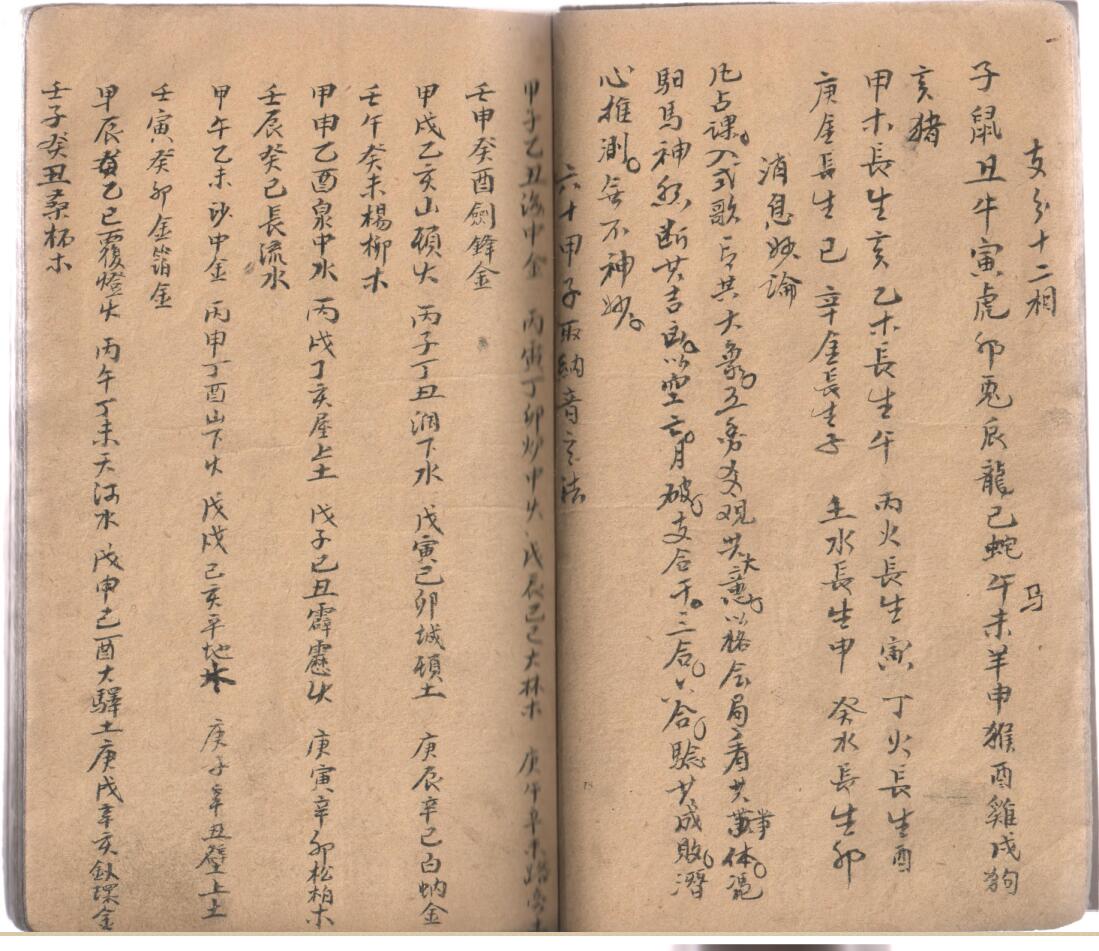 支分十二相
子鼠丑牛寅虎卯兎辰龍巳蛇午未羊申猴酉雞戌狗
马
亥猪
甲木長生亥 乙木長生午 丙火長生寅 丁火長生酉
庚金長生巳 辛金長生子 壬水長生申 癸水長生卯
消息妙論
凡占課。入式歌占其大象。五爻观其大意以格合局看其事体。
馹馬神煞断其吉凶。以空亡。月破。支合干。三合。六合。騐其成敗。潛
心推測。無不神妙。
六十甲子取納音之法
甲子乙丑海中金 丙寅丁卯炉中火 戊辰己巳大林木 庚午辛未路旁土
壬申癸酉劍鋒金
甲戌乙亥山頭火 丙子丁丑澗下水 戊寅己卯城頭土 庚辰辛巳白蚋金
壬午癸未楊柳木
甲申乙酉泉中水 丙戌丁亥屋上土 戊子己丑霹靂火 庚寅辛卯松柏木
壬辰癸巳長流水
甲午乙未沙中金 丙申丁酉山下火 戊戌己亥平地木 庚子辛丑壁上土
壬寅癸卯金箔金
甲辰乙巳覆燈火 丙午丁未天河水 戊申己酉大驛土 庚戌辛亥釵環金
壬子癸丑桑柘木